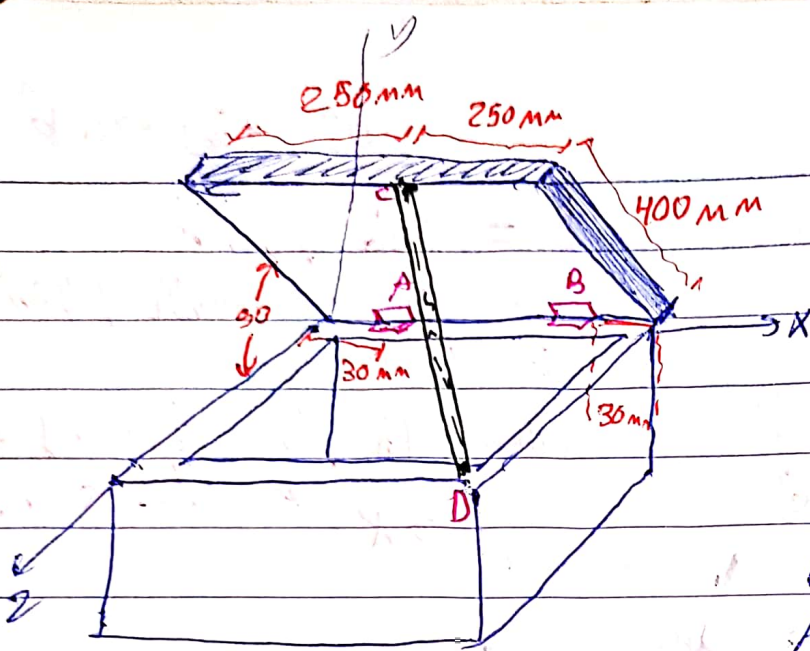 y
250mm
250mm
400mm
C
A
B
X
30
30mm
30mm
D
Z